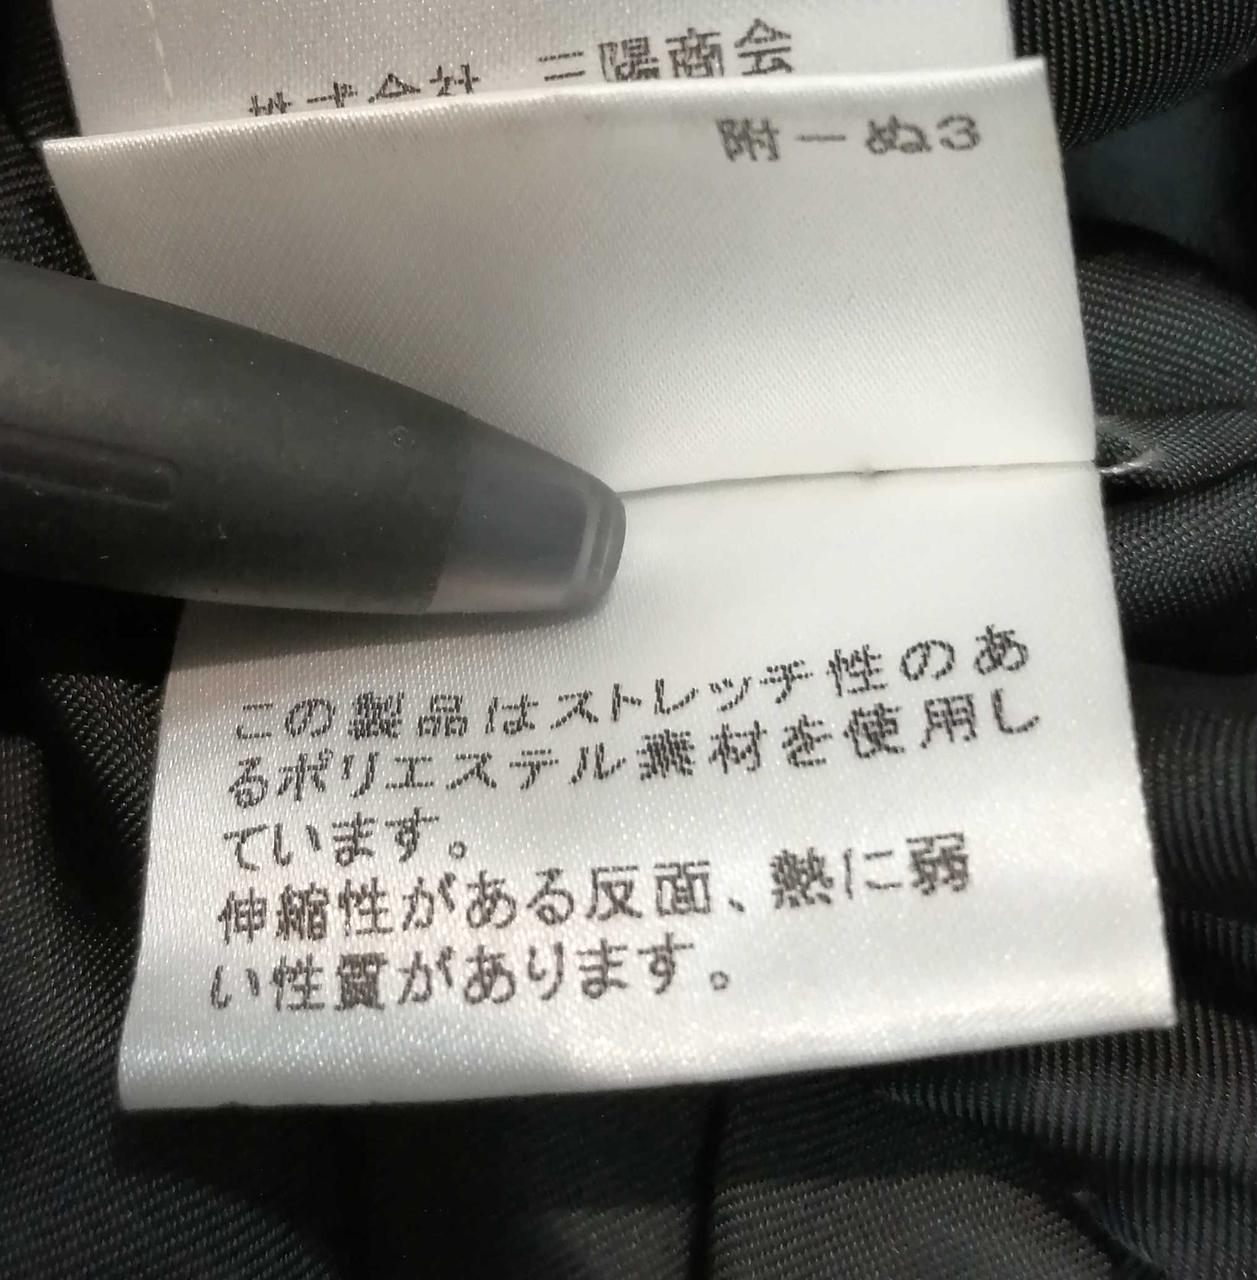 株式会社 三陽商会
附ーぬ3
この製品はストレッチ性のあ
るポリエステル素材を使用し
ています。
伸縮性がある反面、熱に弱
い性質があります。